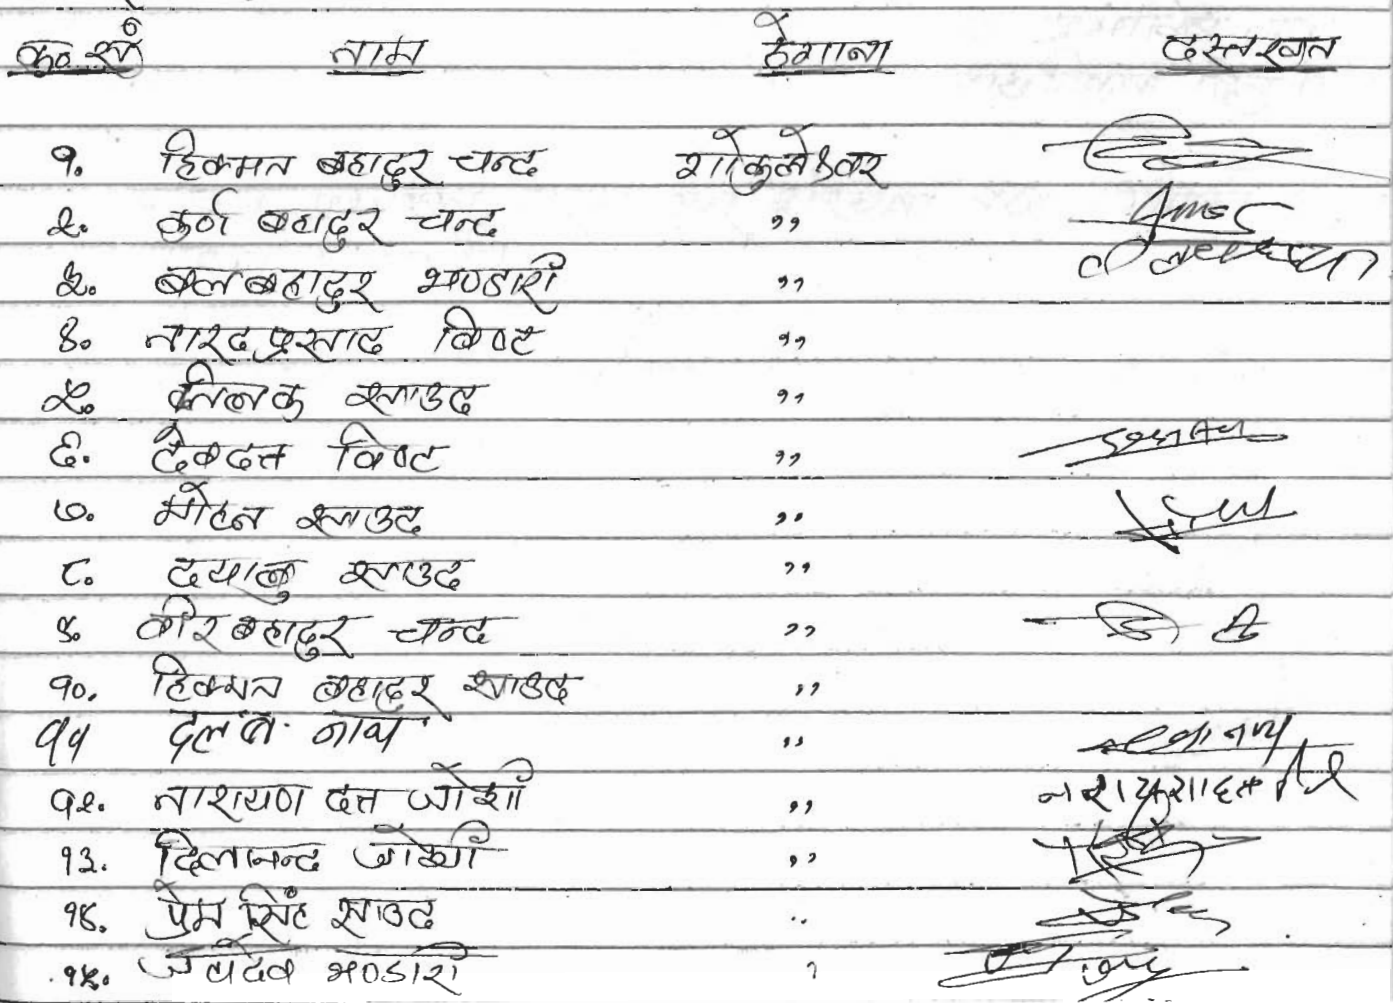 क्र.सं नाम ठेगाना दस्तखत
१. हिक्मत बहादुर चन्द गोकुलेश्वर
२. कर्ण बहादुर चन्द ,,
३. बलबहादुर भण्डारी ,,
४. नारदप्रसाद विष्ट ,,
५. तिलक साउद ,,
६. देबदत्त विष्ट ,,
७. मोहन साउद ,,
८. दयालु साउद ,,
९. वीरबहादुर चन्द ,,
१०. हिक्मत बहादुर साउद ,,
११ नाथ ,,
१२. नारायण दत्त जोशी ,,
१३. दिलानन्द जोशी ,,
१४. प्रेम सिंह साउद ,,
१५. जयदेव भण्डारी ,